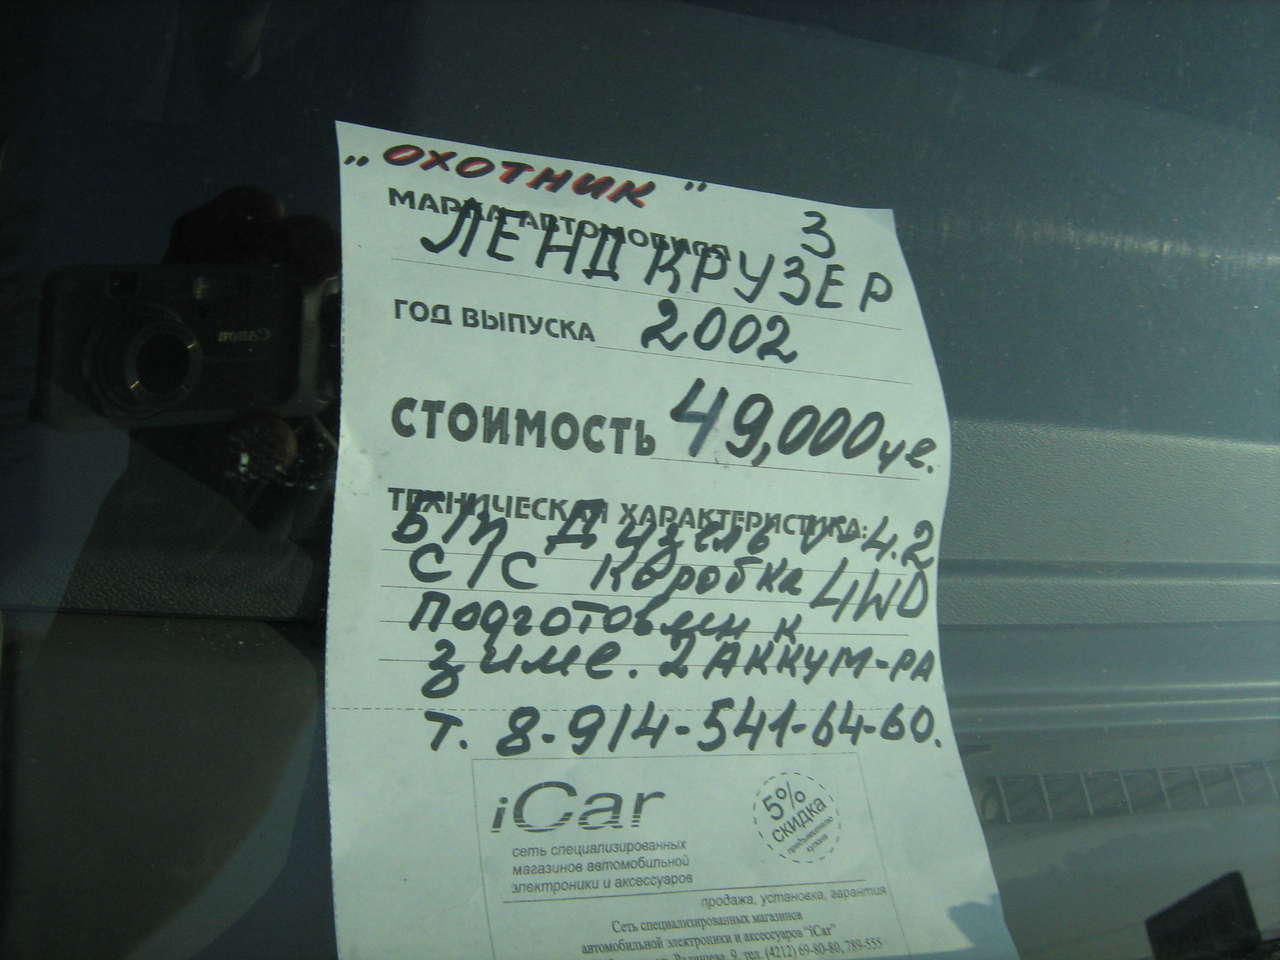 „ОХОТНИК"
МАРКА АВТОМОБИЛЯ
З
ЛЕНДКРУЗЕР
ГОД ВЫПУСКА 2002
СТОИМОСТЬ 49,000 уе.
ТЕХНИЧЕСКАЯ ХАРАКТЕРИСТИКА:
Б/п Дизель V-4.2
С/С Коробка 4WD
подготовлен к
зиме. 2 аккум-ра
т. 8-914-541-64-60.
iCar
5%
скидка
предъявителю
купона
сеть специализированных
магазинов автомобильной
электроники и аксессуаров
продажа, установка, гарантия
Сеть специализированных магазинов
автомобильной электроники и аксессуаров "iCar"
9, тел. (4212) 69-80-80, 789-555
Canon